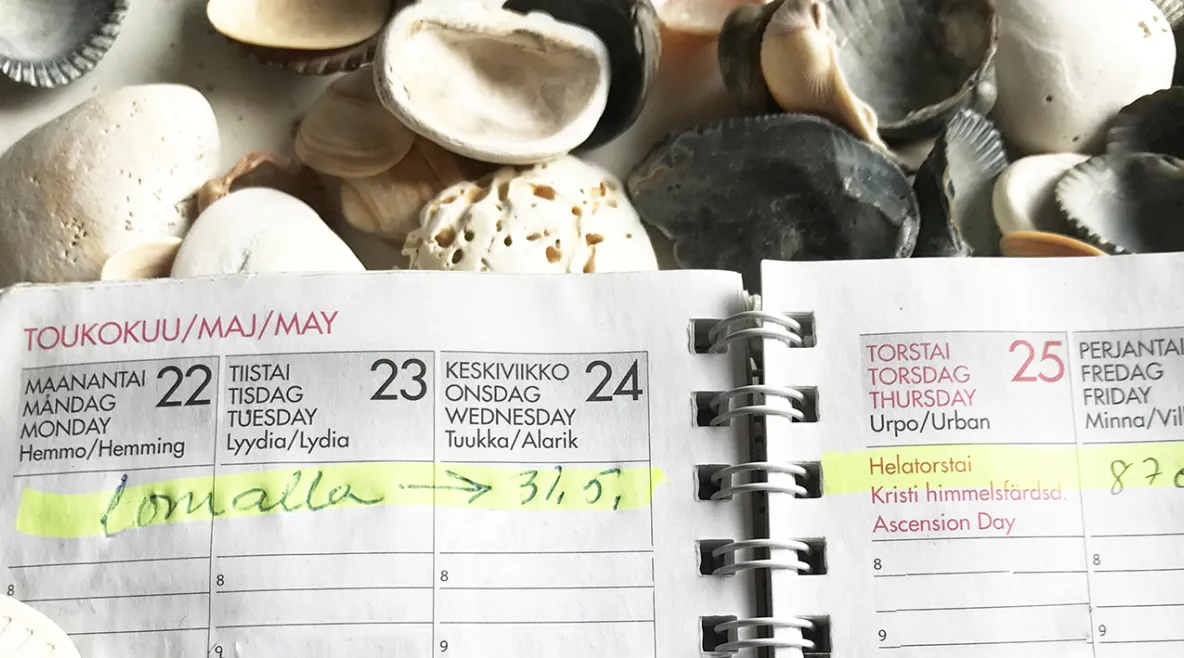 TOUKOKUU/MAJ/MAY
MAANANTAI 22
MÅNDAG
MONDAY
Hemmo/Hemming
TIISTAI 23
TISDAG
TUESDAY
Lyydia/Lydia
KESKIVIIKKO 24
ONSDAG
WEDNESDAY
Tuukka/Alarik
lomalla → 31.5.
8
8
8
9
9
TORSTAI 25
TORSDAG
THURSDAY
Urpo/Urban
Helatorstai
Kristi himmelsfärdsd.
Ascension Day
8
9
PERJANTAI
FREDAG
FRIDAY
Minna/Vil
8
9